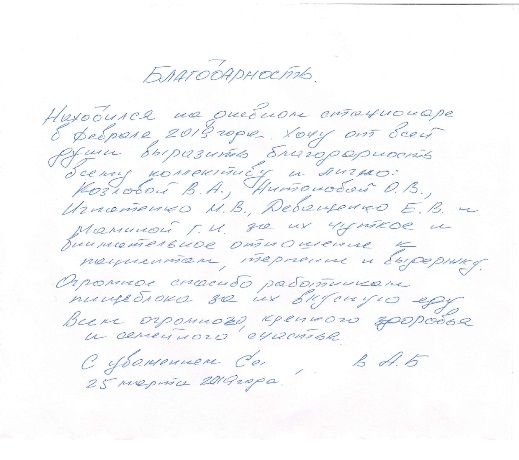 Благодарность.
Находился на дневном стационаре
в феврале 2019 года. Хочу от всей
души выразить благодарность
всему колективу и лично:
Козловой В.А., Антоновой О.В.,
Игнатенко М.В., Деващенко Е.В. и
Маминой Г.И. за их чуткое и
внимательное отношение к
пациентам, терпение и выдержку.
Огромное спасибо работникам
пищеблока за их вкусную еду
Всем огромного, крепкого здоровья
и семейного счастья.
С уважением Со в А.Б
25 марта 2019 года.